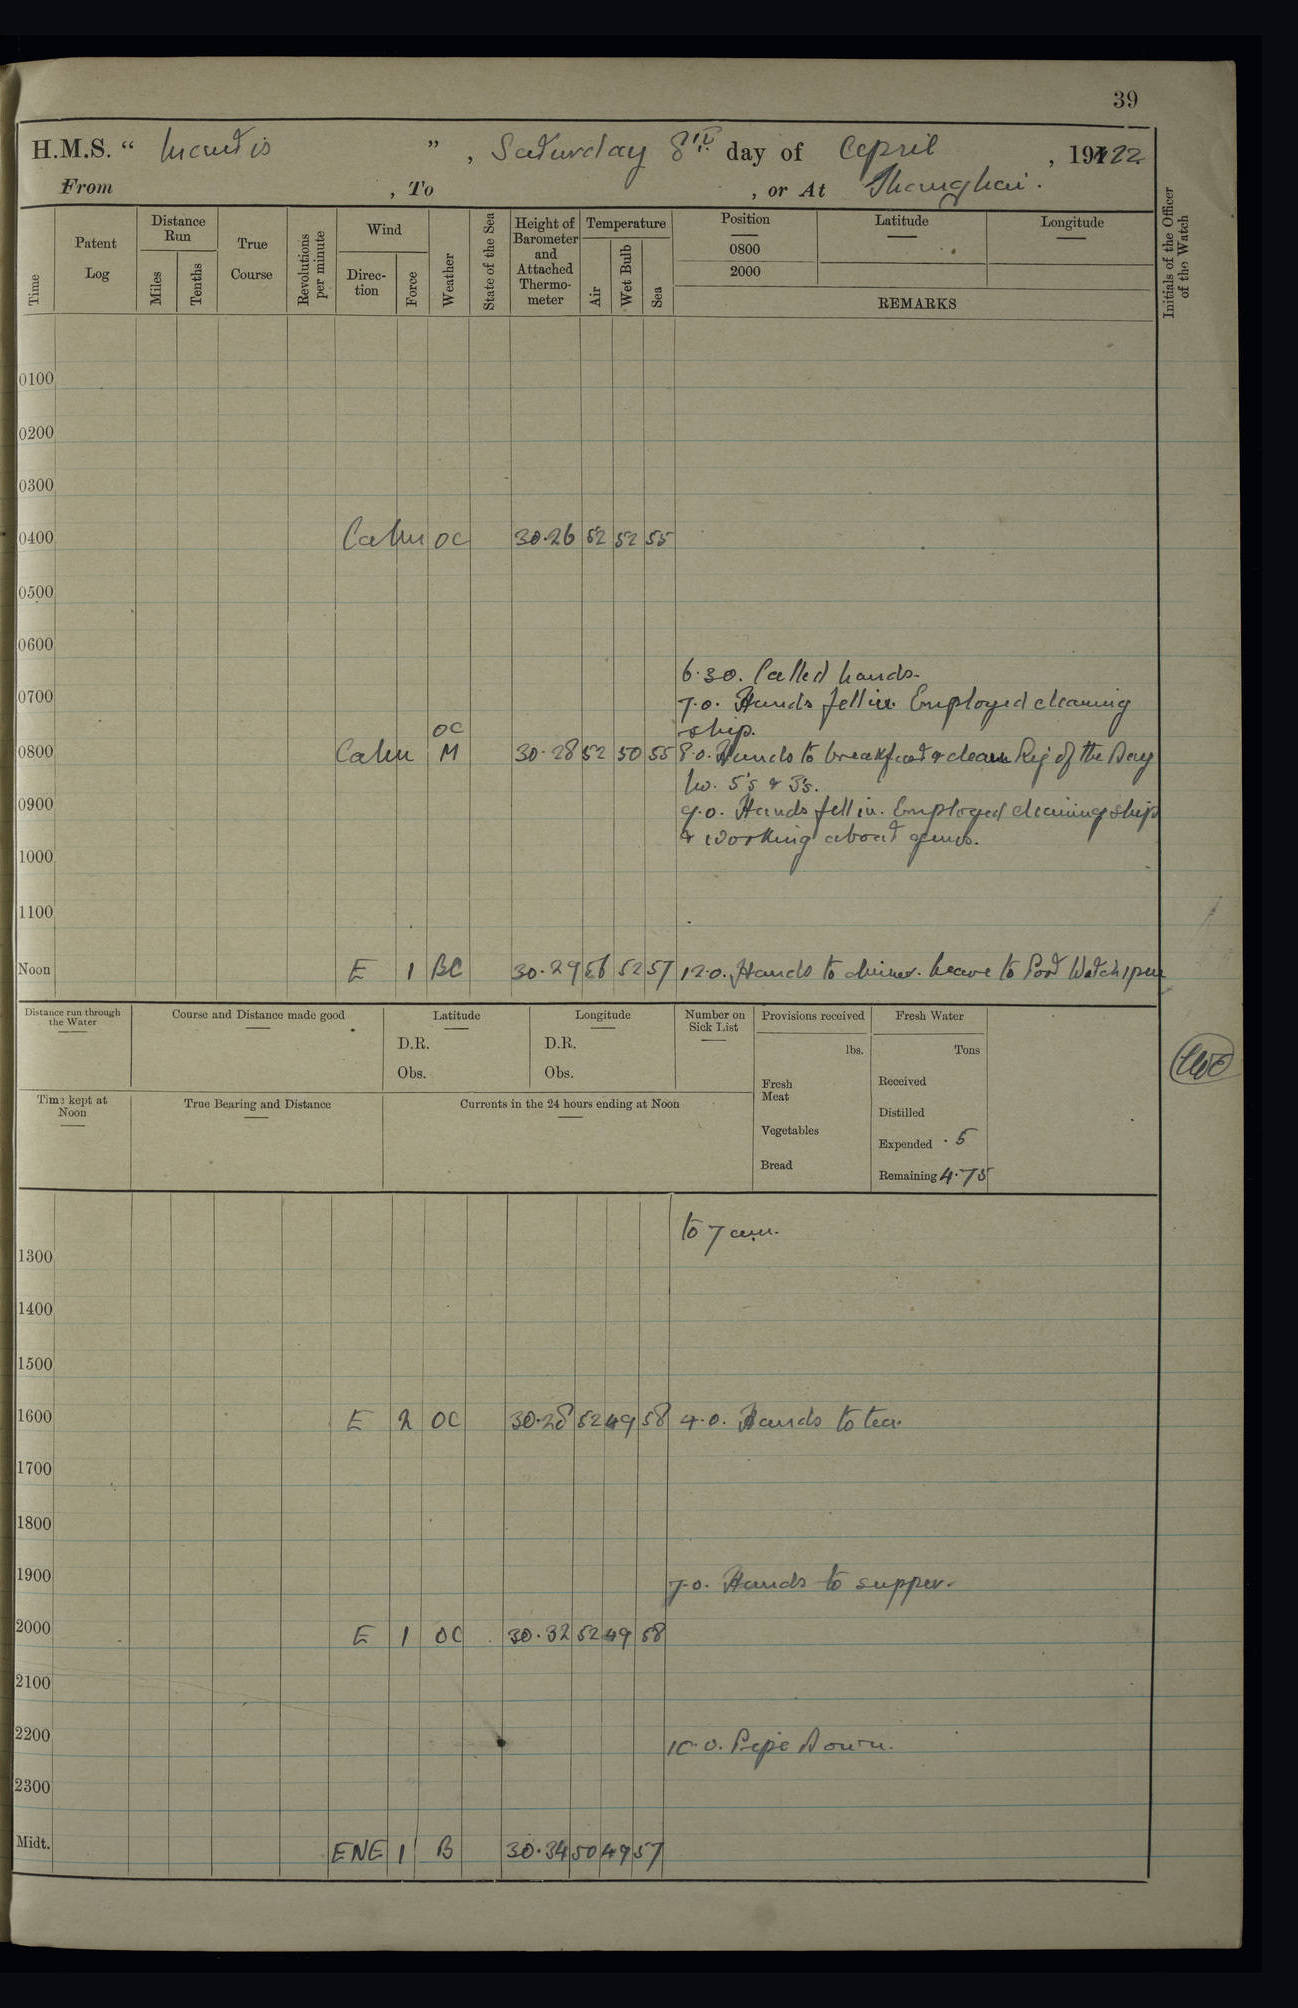 39
H.M.S. “ Mantis ” , Saturday 8th day of April , 1922
From , To , or At Shanghai.
Time
Patent Log
Distance Run
Miles
Tenths
True Course
Revolutions per minute
Wind
Direction
Force
Weather
State of the Sea
Height of Barometer and Attached Thermometer
Temperature
Air
Wet Bulb
Sea
Position Latitude Longitude
0800
2000
REMARKS
Initials of the Officer of the Watch
0100
0200
0300
0400 Calm OC 30.26 52 52 55
0500
0600
6.30. Called hands.
0700 7.0. Hands fell in. Employed cleaning
OC ship.
0800 Calm M 30.28 52 50 55 8.0. Hands to breakfast & clean Rig of the Day
5's & 3's.
0900 9.0. Hands fell in. Employed cleaning ship
& working about guns.
1000
1100
Noon E 1 BC 30.29 56 52 57 12.0. Hands to dinner. Leave to Port Watch 1 pm
Distance run through the Water
Course and Distance made good
Latitude
D.R.
Obs.
Longitude
D.R.
Obs.
Number on Sick List
Provisions received
lbs.
Fresh Meat
Vegetables
Bread
Fresh Water
Tons
Received
Distilled
Expended .5
Remaining 4.75
Time kept at Noon
True Bearing and Distance
Currents in the 24 hours ending at Noon
to 7 am.
1300
1400
1500
1600 E 2 OC 30.28 52 49 58 4.0. Hands to tea.
1700
1800
1900 7.0. Hands to supper.
2000 E 1 OC 30.32 52 49 58
2100
2200 10.0. Pipe Down.
2300
Midt. ENE 1 B 30.34 50 49 57